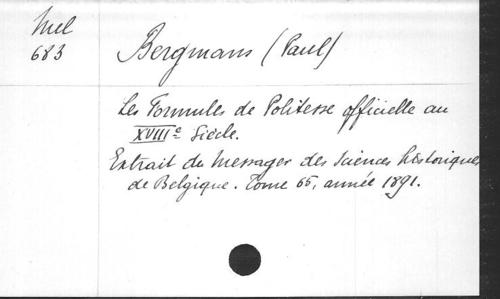 Mel
683
Bergmans (Paul)
Les Formules de Politesse officielle au
XVIIIe Siècle.
Extrait du Messager des Sciences historiques
de Belgique. Tome 65, année 1891.